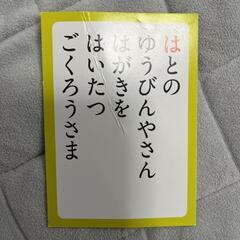 はとの
ゆうびんやさん
はがきを
はいたつ
ごくろうさま